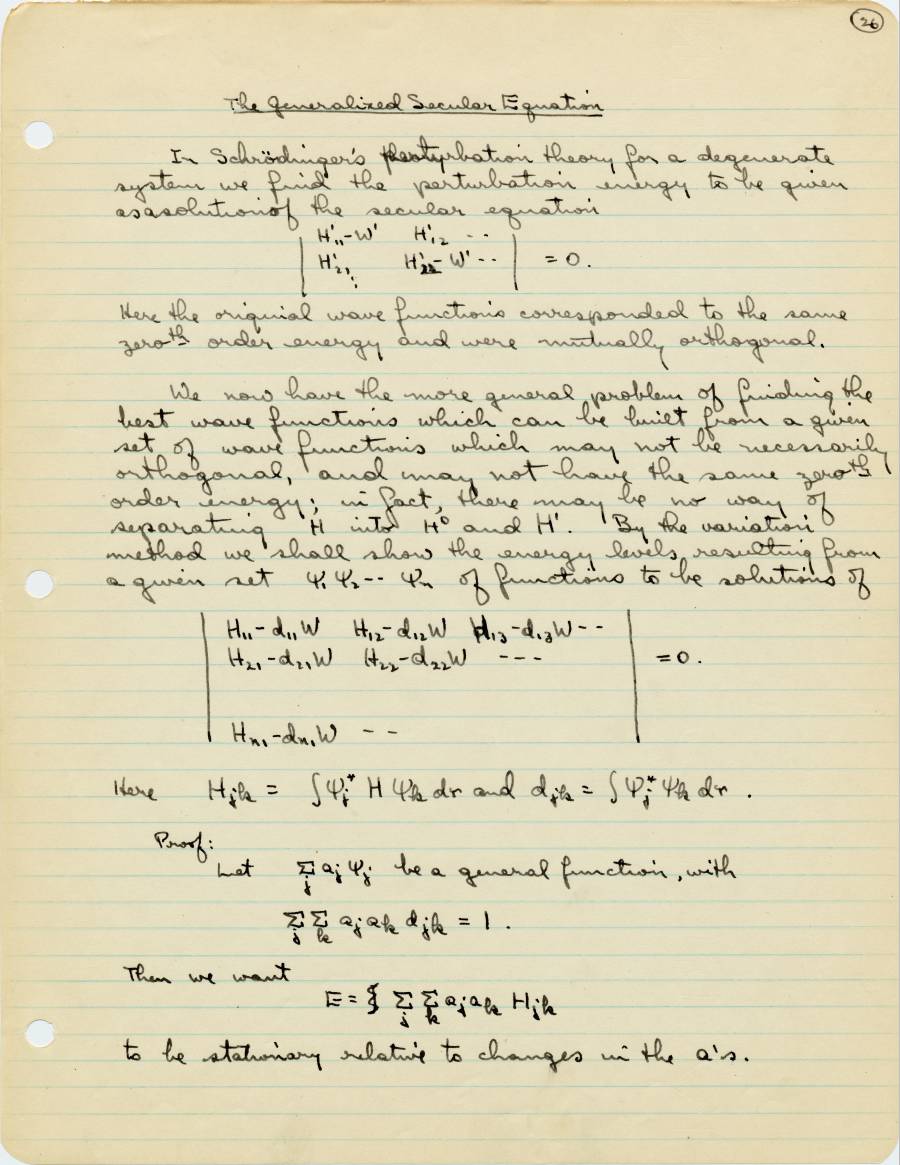 26
The Generalized Secular Equation
In Schrödinger's perturbation theory for a degenerate
system we find the perturbation energy to be given
as a solution of the secular equation
| H'₁₁-W' H'₁₂ -- |
| H'₂₁ H'₂₂-W' -- | = 0.
⋮
Here the original wave functions corresponded to the same
zeroᵗʰ order energy and were mutually orthogonal.
We now have the more general problem of finding the
best wave functions which can be built from a given
set of wave functions which may not be necessarily
orthogonal, and may not have the same zeroᵗʰ
order energy; in fact, there may be no way of
separating H into H⁰ and H'. By the variation
method we shall show the energy levels, resulting from
a given set ψ₁ ψ₂ -- ψₙ of functions to be solutions of
| H₁₁-d₁₁W H₁₂-d₁₂W H₁₃-d₁₃W -- |
| H₂₁-d₂₁W H₂₂-d₂₂W --- | = 0.
| Hₙ₁-dₙ₁W -- |
Here Hⱼₖ = ∫ψⱼ* H ψₖ dτ and dⱼₖ = ∫ψⱼ* ψₖ dτ.
Proof:
Let Σⱼ aⱼ ψⱼ be a general function, with
Σⱼ Σₖ aⱼ aₖ dⱼₖ = 1.
Then we want
E = Σⱼ Σₖ aⱼ aₖ Hⱼₖ
to be stationary relative to changes in the a's.